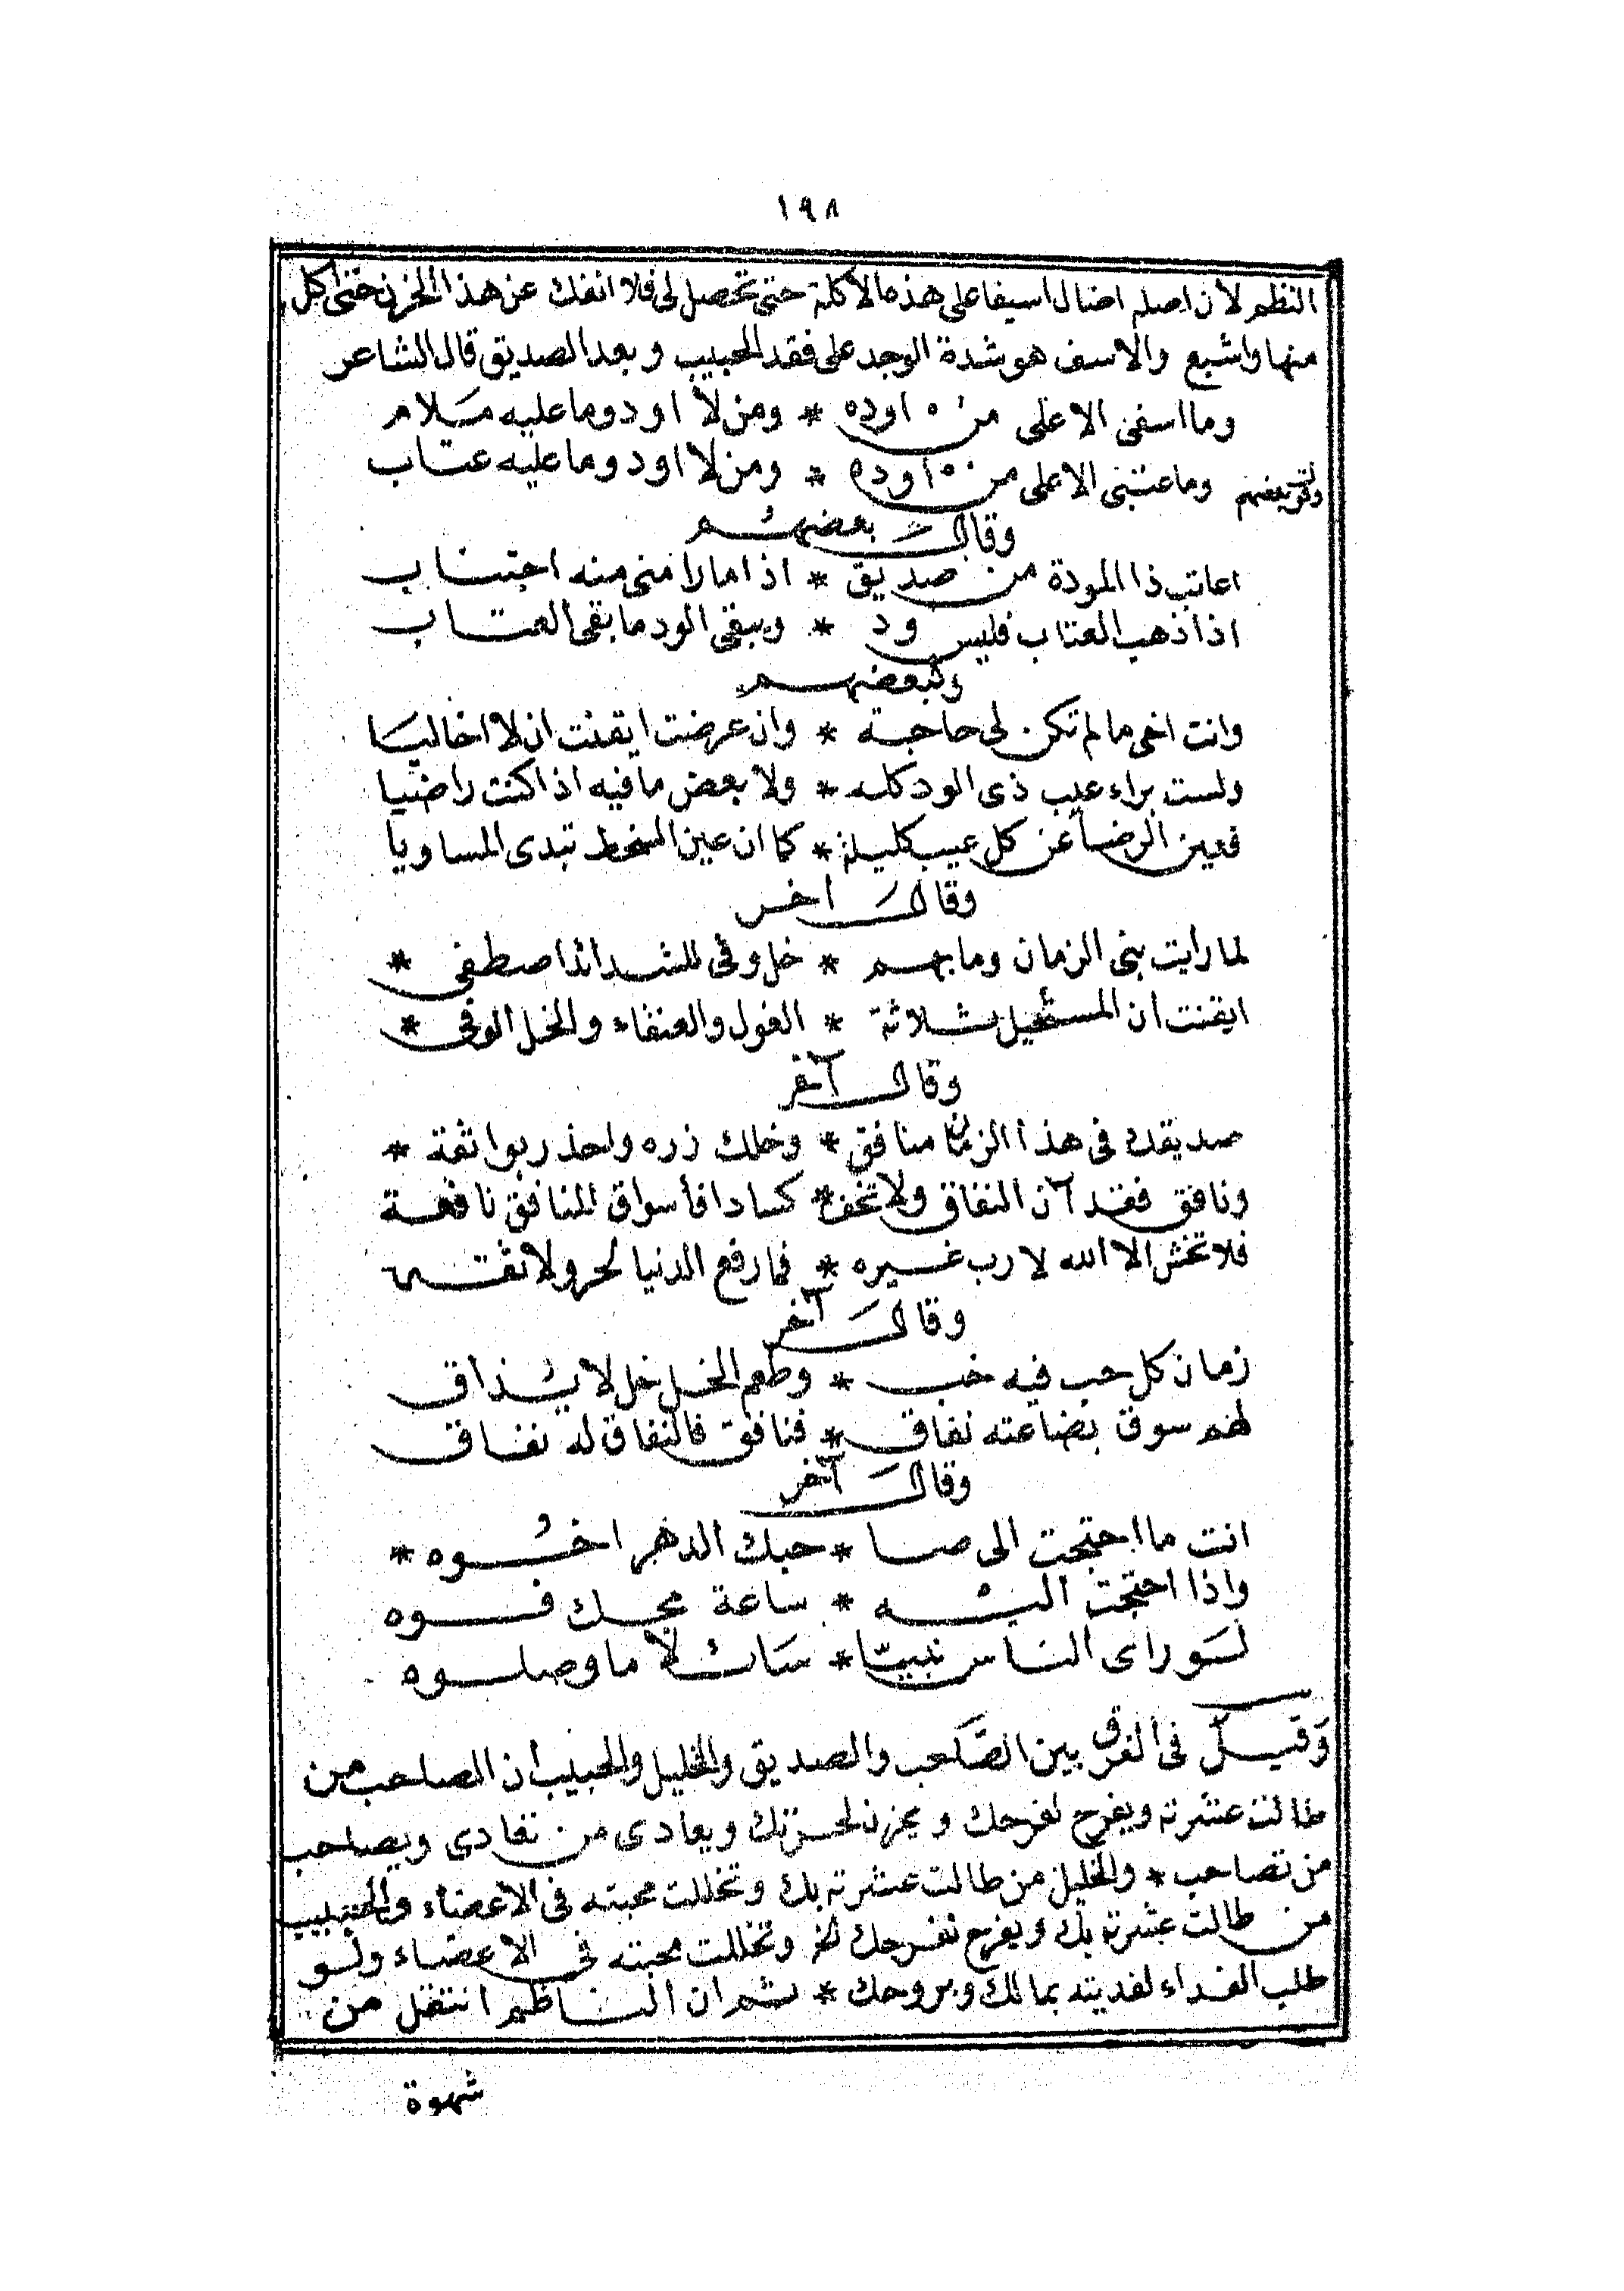 ١٩٨
النظم لان اصله اضال اسيفا على هذه الاكلة حتى تحصل لى فلا انفك عن هذا الحزن حتى اكل
منها واشبع والاسف هو شدة الوجد على فقد الحبيب وبعد الصديق قال الشاعر
وما اسفى الا على من اوده * ومن لا اود وما عليه سلام
وما عتبى الا على من اوده * ومن لا اود وما عليه عتاب
وقال بعضهم
اعاتب ذا المودة من صديق * اذا ما رامنى منه اجتناب
اذا ذهب العتاب فليس ود * ويبقى الود ما بقى العتاب
ولبعضهم
وانت اخى ما لم تكن لى حاجة * وان عرضت ايقنت ان لا اخا ليا
ولست براء عيب ذى الود كله * ولا بعض ما فيه اذا كنت راضيا
فعين الرضا عن كل عيب كليلة * كما ان عين السخط تبدى المساويا
وقال اخر
لما رايت بنى الزمان وما بهم * خل وفى للشدائد اصطفى *
ايقنت ان المستحيل ثلاثة * الغول والعنقاء والخل الوفى *
وقال آخر
صديقك فى هذا الزمان منافق * وخلك ذره واحذر بوائقه *
ونافق فقد آن النفاق ولا تخف * كسادا فأسواق المنافق نافقة
فلا تخش الا الله لا رب غيره * فما رفع الدنيا لحر ولا ثقـه
وقال آخر
زمان كل حب فيه خب * وطعم الخل خل لا يذاق
لهم سوق بضاعته نفاق * فنافق فالنفاق له نفاق
وقال آخر
انت ما احتجت الى صا * حبك الدهر اخوه *
واذا احتجت اليه * ساعة مجك فوه
لو راى الناس نبيا * سائلا ما وصلوه
وقيل فى الفرق بين الصاحب والصديق والخليل والحبيب ان الصاحب من
طالت عشرته ويفرح لفرحك ويحزن لحزنك ويعادى من تعادى ويصاحب
من تصاحب * والخليل من طالت عشرته بك وتخللت محبته فى الاعضاء والحبيب
من طالت عشرته بك ويفرح لفرحك الخ وتخللت محبته فى الاعضاء ولو
طلب الفداء لفديته بمالك وبروحك * ثم ان الناظم انتقل من
شهوة